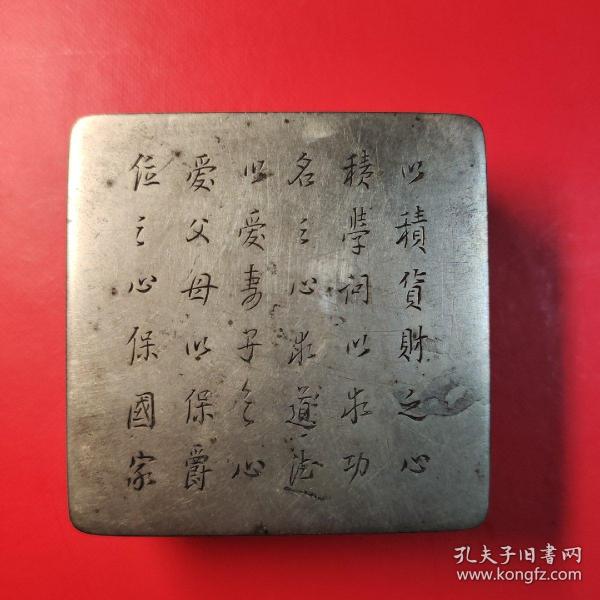 以積貨財之心
積學问以求功
名之心求道德
以愛妻子之心
愛父母以保爵
位之心保國家
孔夫子旧書网
www.kongfz.com